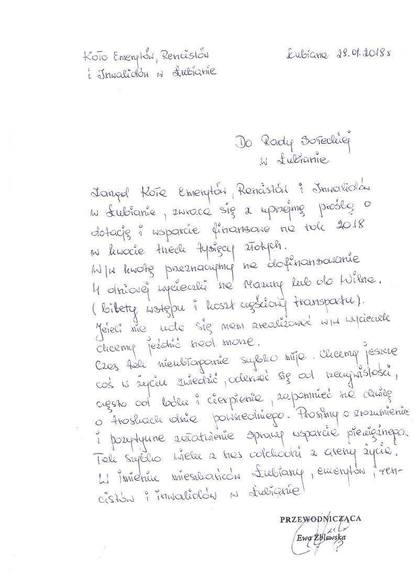 Koło Emerytów, Rencistów
i Inwalidów w Łubianie
Łubiana 29.01.2018r
Do Rady Sołeckiej
w Łubianie
Zarząd Koła Emerytów, Rencistów i Inwalidów
w Łubianie, zwraca się z uprzejmą prośbą o
dotację i wsparcie finansowe na rok 2018
w kwocie trzech tysięcy złotych.
W/w kwotę przeznaczymy na dofinansowanie
4 dniowej wycieczki na Mazury lub do Wilna.
(bilety wstępu i koszt częściowy transportu).
Jeżeli nie uda się nam zrealizować w/w wycieczek
chcemy jeździć nad morze.
Czas tak nieubłaganie szybko mija. Chcemy jeszcze
coś w życiu zwiedzić, oderwać się od rzeczywistości,
często od bólu i cierpienia, zapomnieć na chwilę
o troskach dnia powszedniego. Prosimy o zrozumienie
i pozytywne załatwienie sprawy wsparcia pieniężnego.
Tak szybko wielu z nas odchodzi z areny życia.
W imieniu mieszkańców Łubiany, emerytów, ren-
cistów i inwalidów w Łubianie
PRZEWODNICZĄCA
Ewa Żblewska